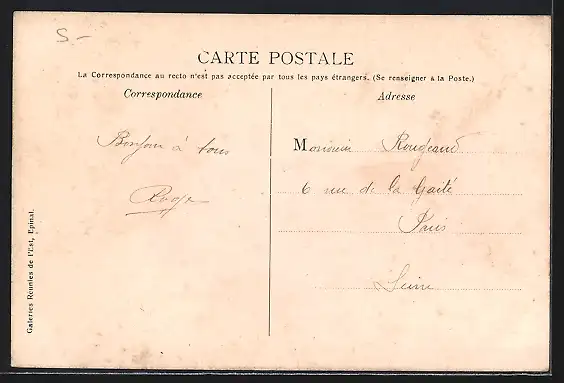 S-
CARTE POSTALE
La Correspondance au recto n'est pas acceptée par tous les pays étrangers. (Se renseigner à la Poste.)
Correspondance
Adresse
Bonjour à tous
Roger
Monsieur Rougeaud
6 rue de la Gaité
Paris
Seine
Galeries Reunies de l'Est, Epinal.